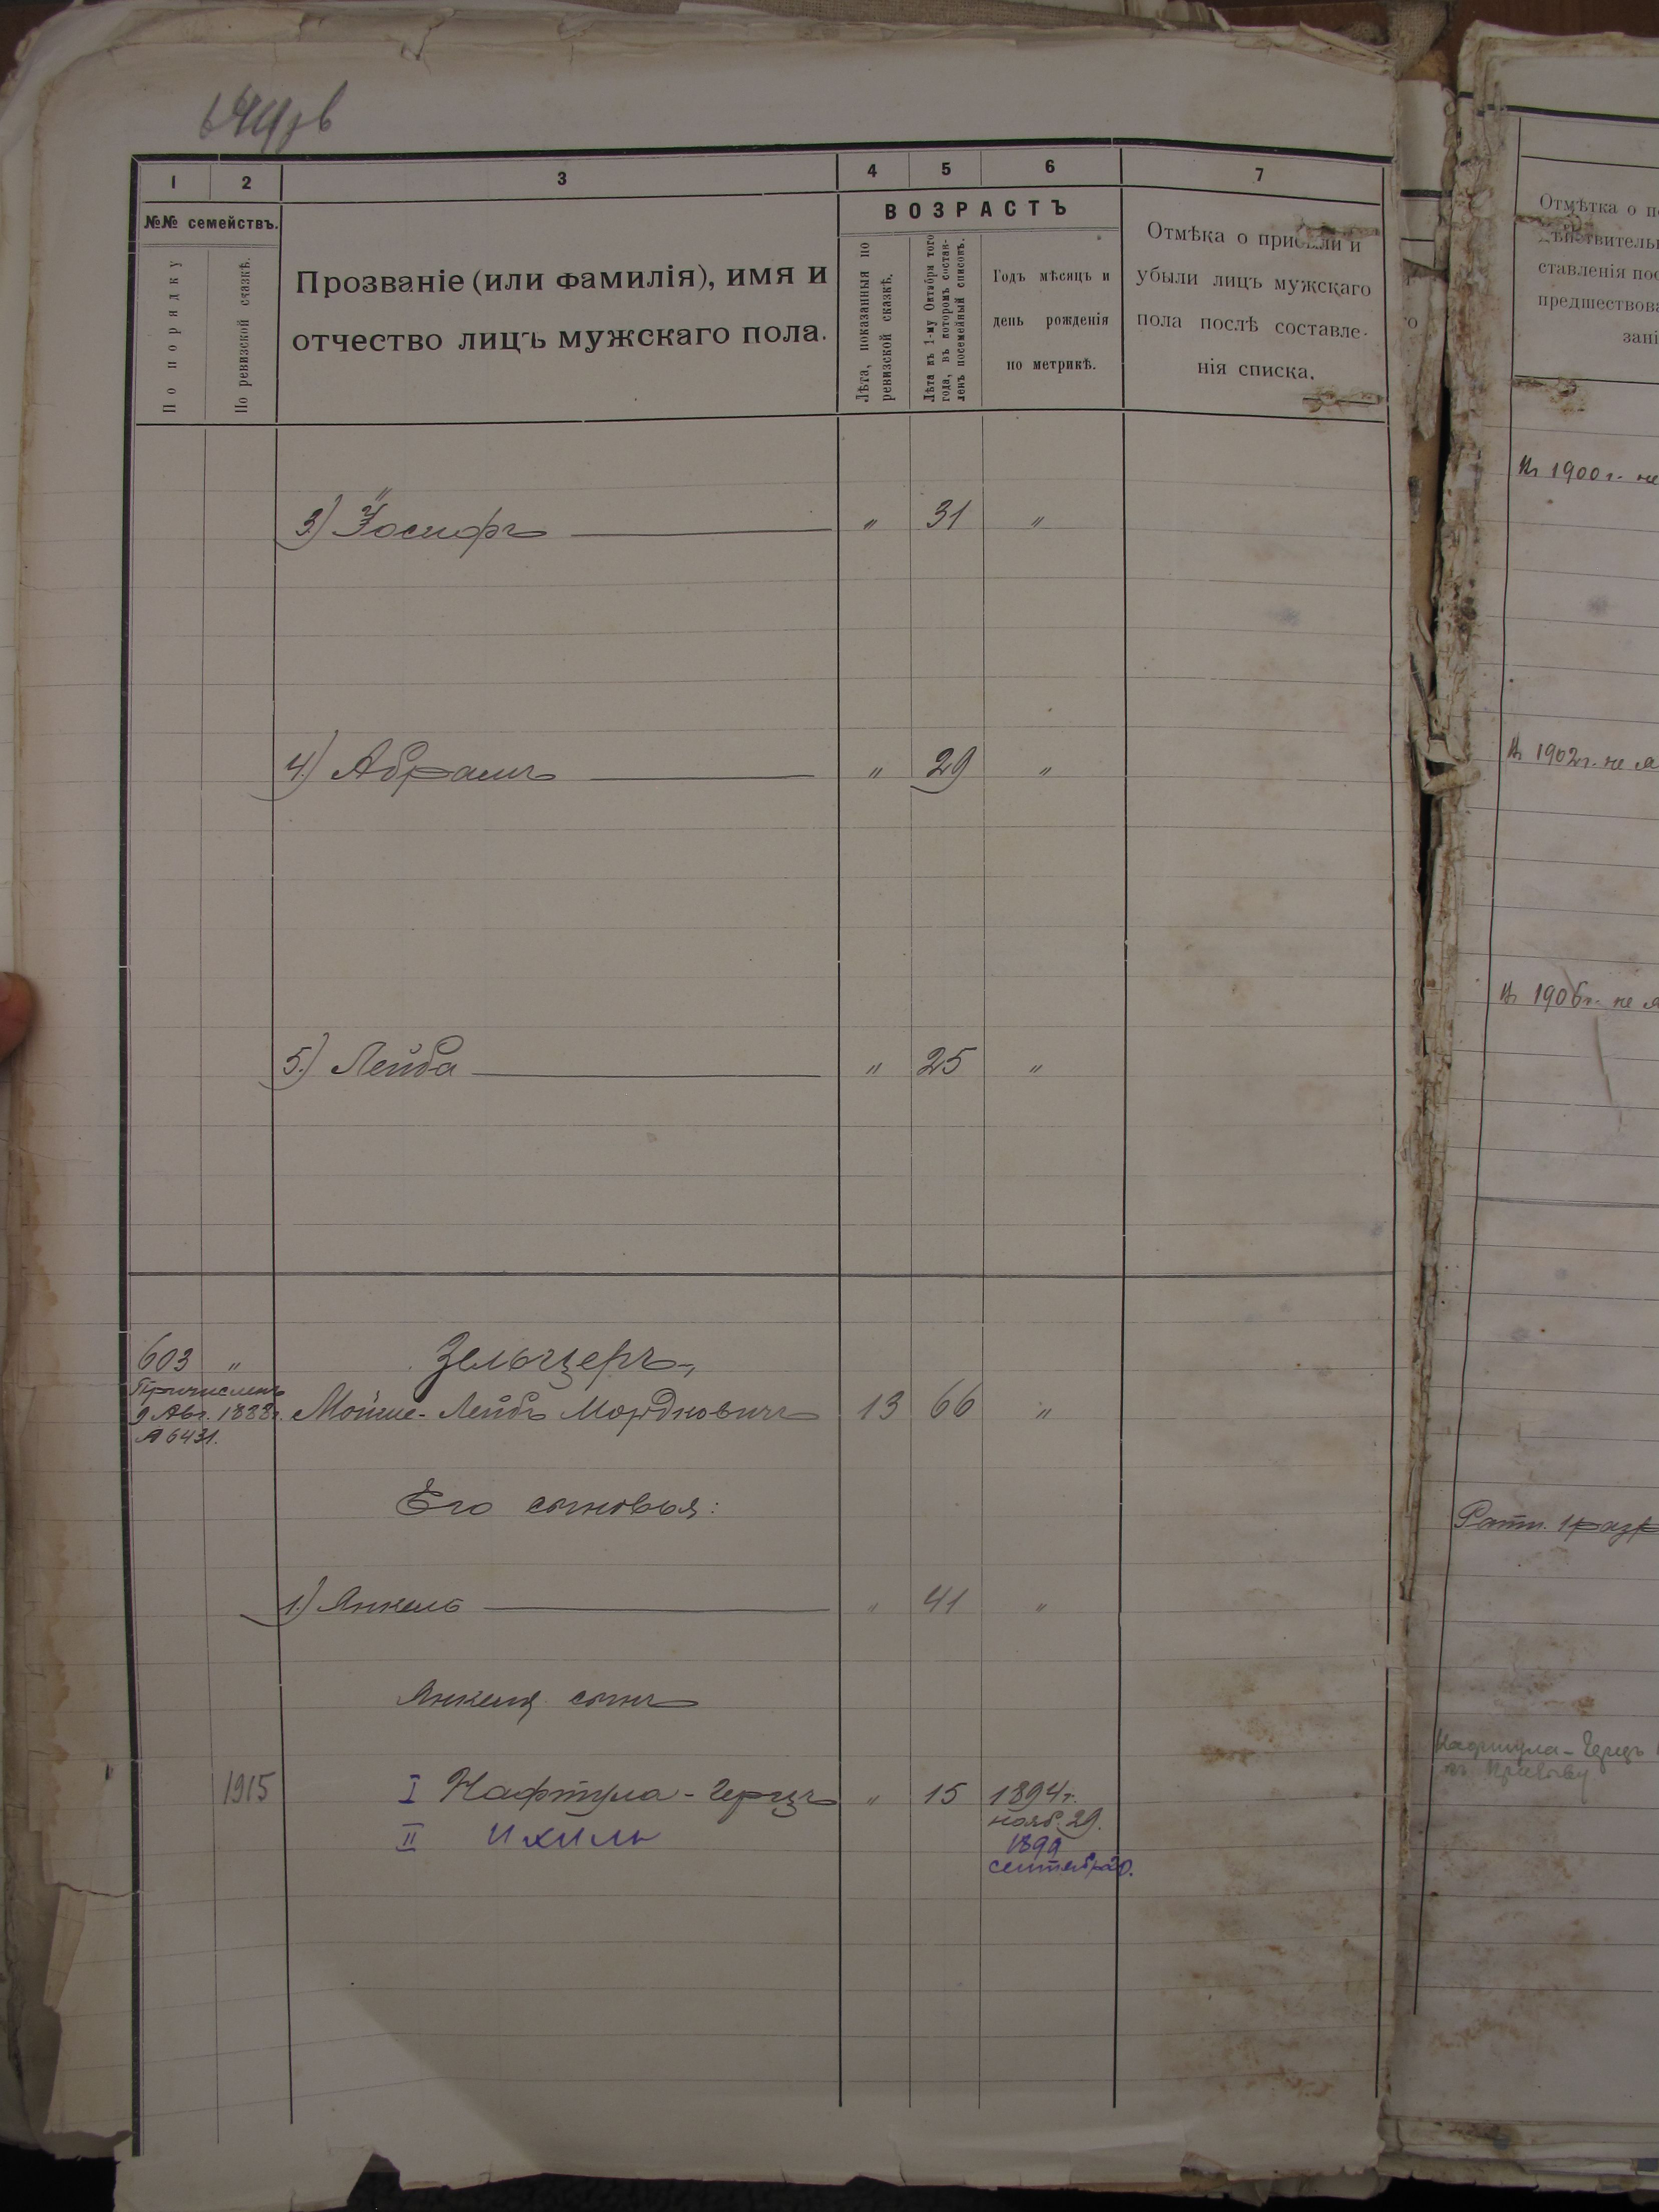 1 2 3 4 5 6 7
№№ семействъ.
По порядку
По ревизской сказкѣ.
Прозваніе (или фамилія), имя и
отчество лицъ мужскаго пола.
ВОЗРАСТЪ
Лѣта, показанныя по
ревизской сказкѣ.
Лѣта къ 1-му Октября того
года, въ которомъ состав-
ленъ посемейный списокъ.
Годъ мѣсяцъ и
день рожденія
по метрикѣ.
Отмѣка о прибыли и
убыли лицъ мужскаго
пола послѣ составле-
нія списка.
3) Іосифъ " 31 "
4) Абрамъ " 29 "
5) Лейба " 25 "
603 " Зельцеръ,
Причисленъ
9 Авг. 1888г. Мойше-Лейбъ Мордковичъ 13 66 "
№ 6431.
Его сыновья:
1) Янкель " 41 "
Янкеля сынъ
1915 I Нафтула-Герцъ " 15 1894г.
нояб. 29.
II Ихиль 1899
сентября 20.
Отмѣтка о
ставленія
предшествова
зані
Въ 1900 г. не
Въ 1902 г. не я
Въ 1906 г. не я
Ратн. 1 разр
Нафтула-Герцъ
къ призыву